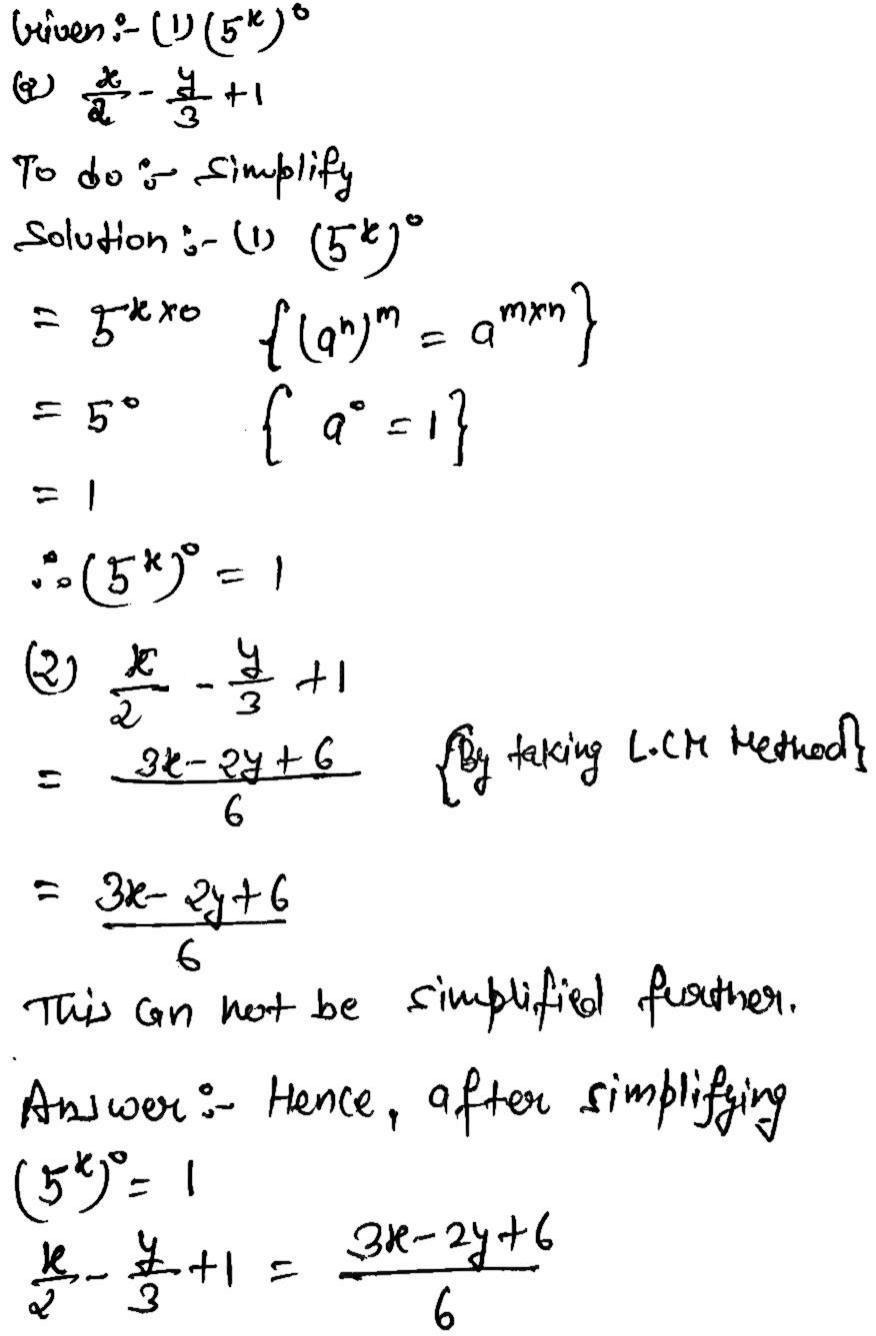 Given:- (1) (5^x)^0
(2) x/2 - y/3 + 1
To do :- Simplify
Solution :- (1) (5^x)^0
= 5^x×0 {(a^n)^m = a^m×n}
= 5^0 { a^0 = 1}
= 1
∴ (5^x)^0 = 1
(2) x/2 - y/3 + 1
= (3x - 2y + 6)/6 {By taking L.CM Method}
= (3x - 2y + 6)/6
This can not be simplified further.
Answer :- Hence, after simplifying
(5^x)^0 = 1
x/2 - y/3 + 1 = (3x - 2y + 6)/6